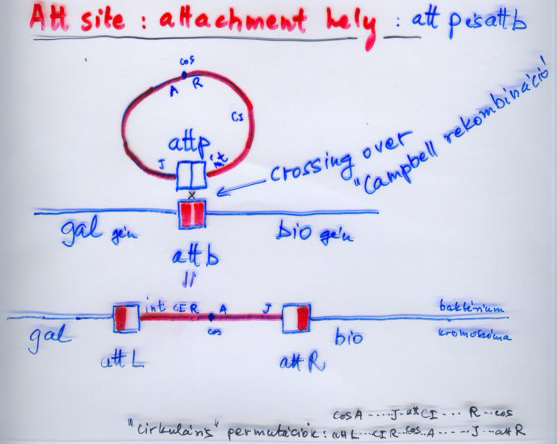 Att site : attachment hely : att p és att b
cos
A R
CI
attp
J int
crossing over
"Campbell rekombináció
x
gal gén bio gén
att b
int CI R A J baktérium
cos
gal bio kromoszóma
att L att R
cos A ..... J-att CI .... R..cos
"cirkuláris" permutációk: att L...CI R..cos..A.....J...att R